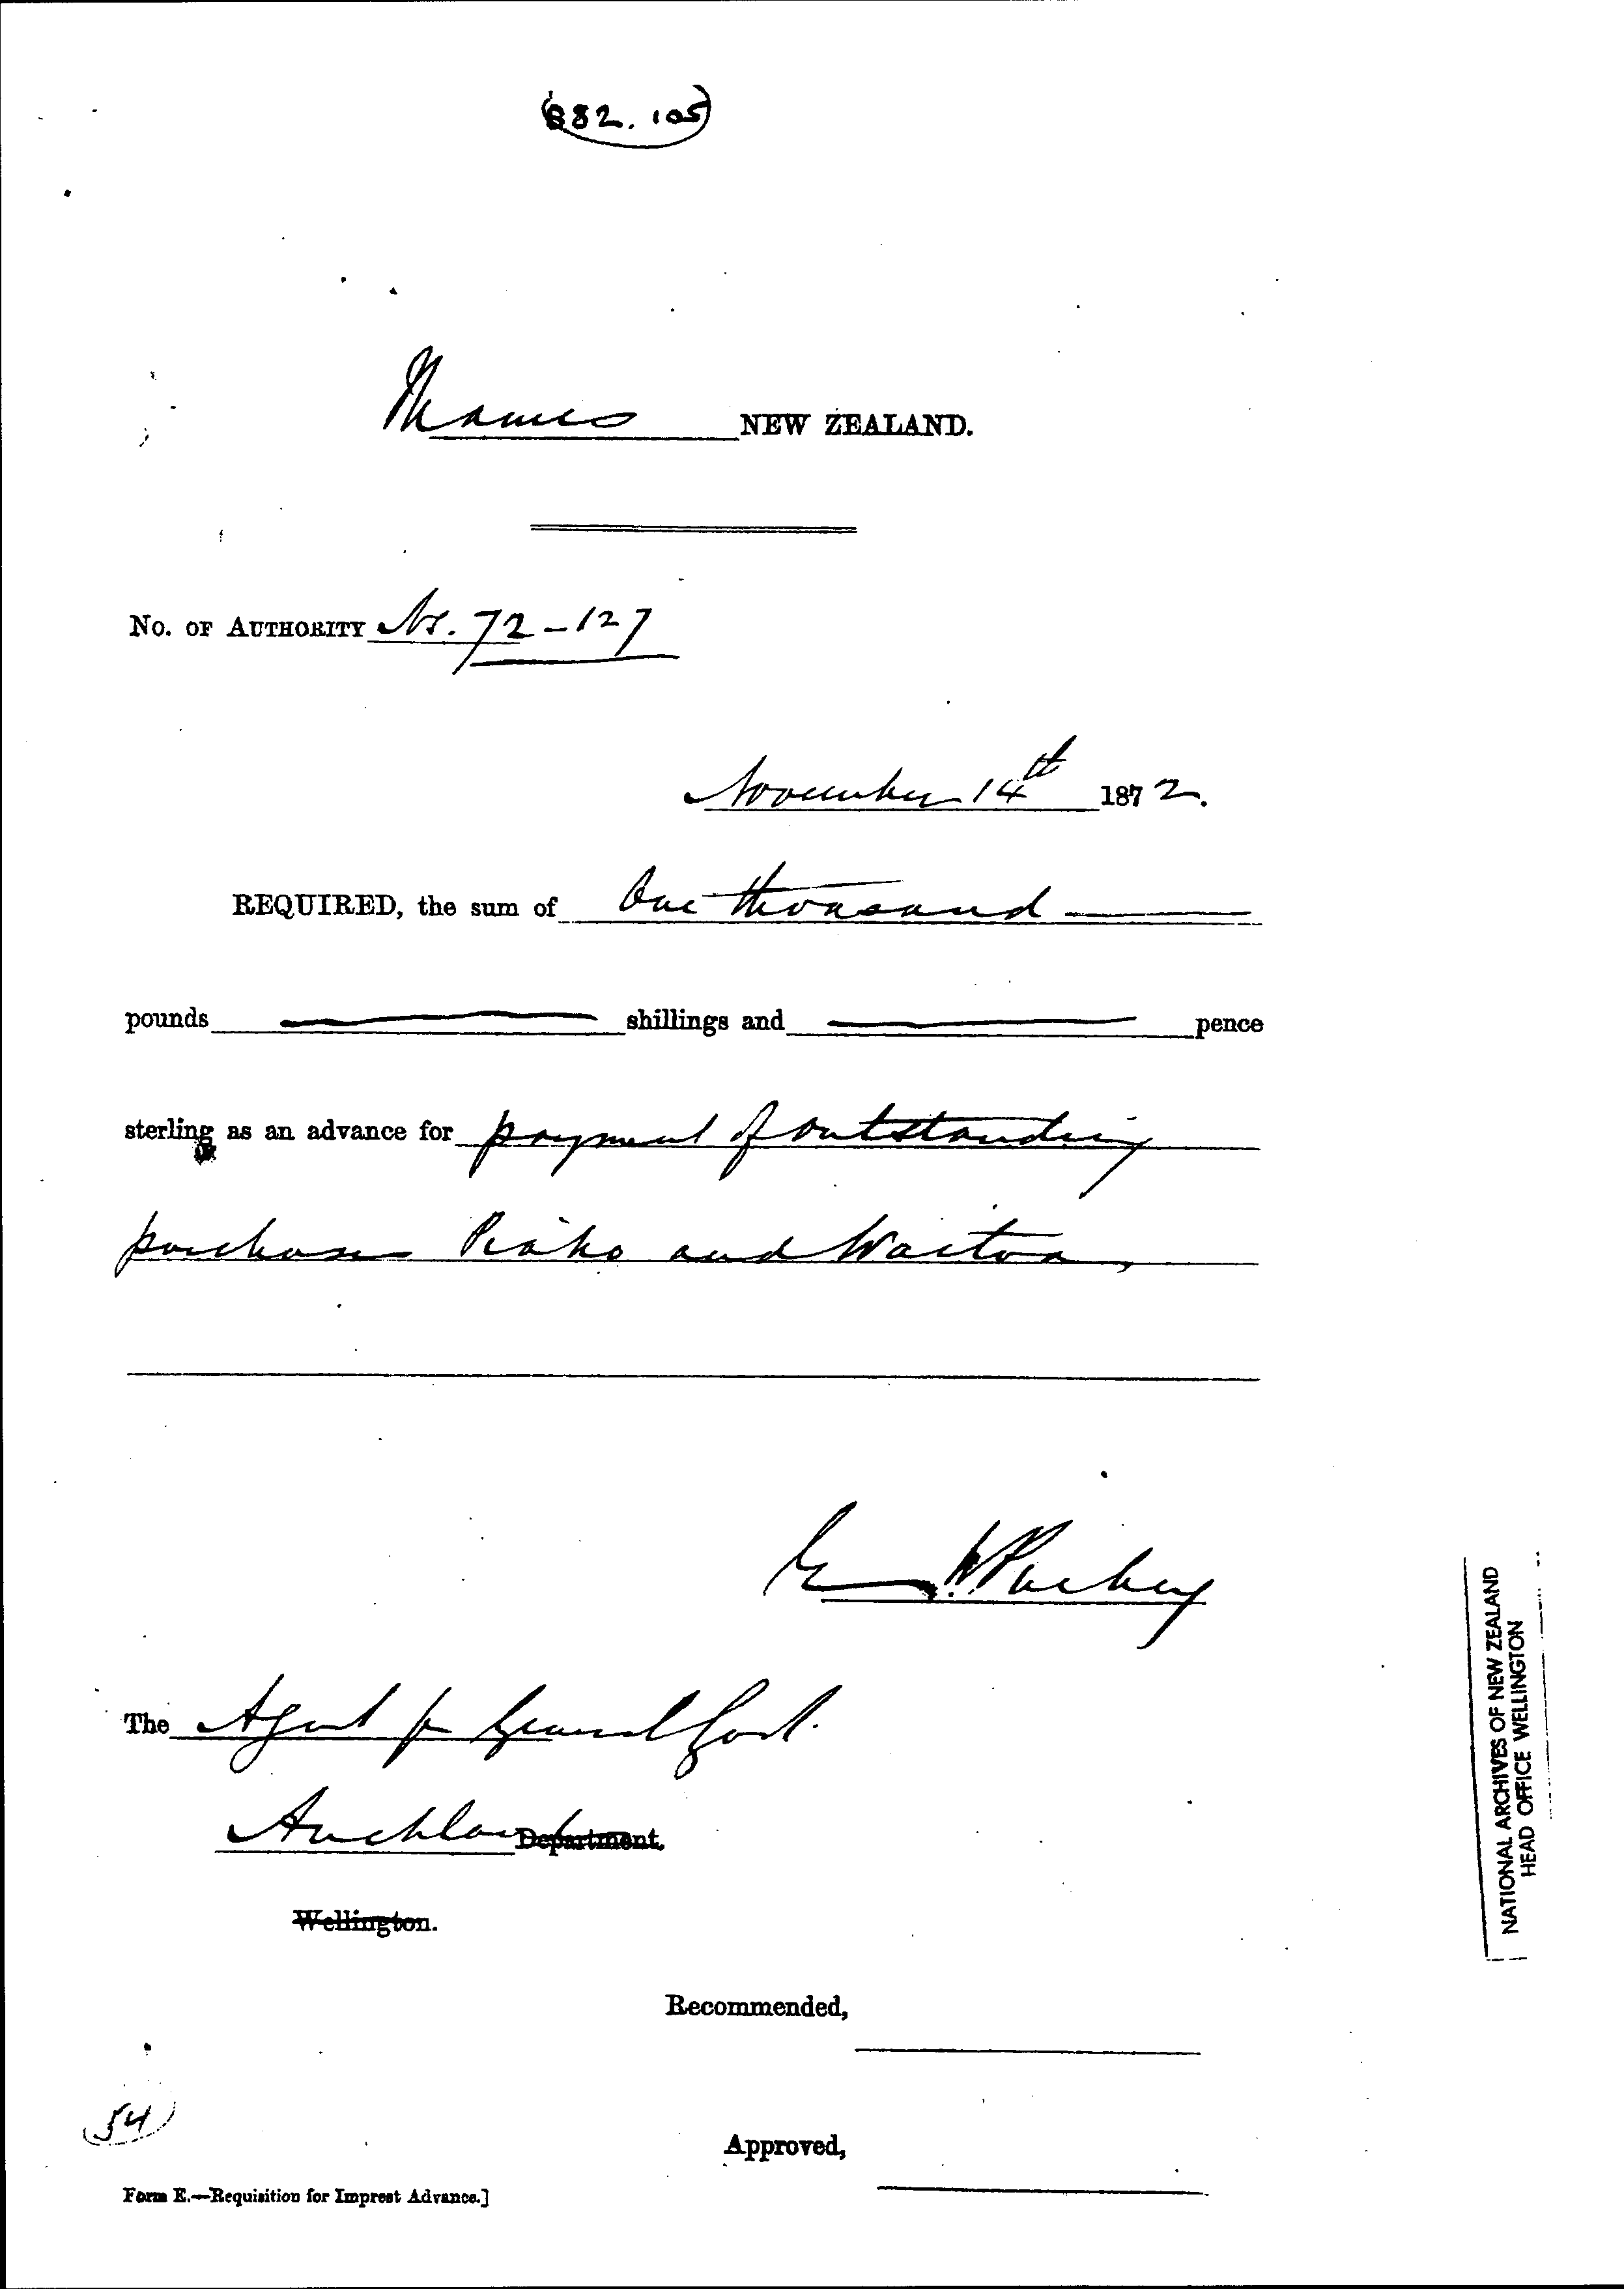 882. 105
Thames NEW ZEALAND.
No. OF AUTHORITY No. 72-127
November 14th 1872.
REQUIRED, the sum of One thousand
pounds shillings and pence
sterling as an advance for payment of outstanding
purchases Piako and Waitoa,
E. W. Puckey
The Agent for General Govt.
Auckland Department.
Wellington.
Recommended,
54
Approved,
Form E.—Requisition for Imprest Advance.]
NATIONAL ARCHIVES OF NEW ZEALAND
HEAD OFFICE WELLINGTON